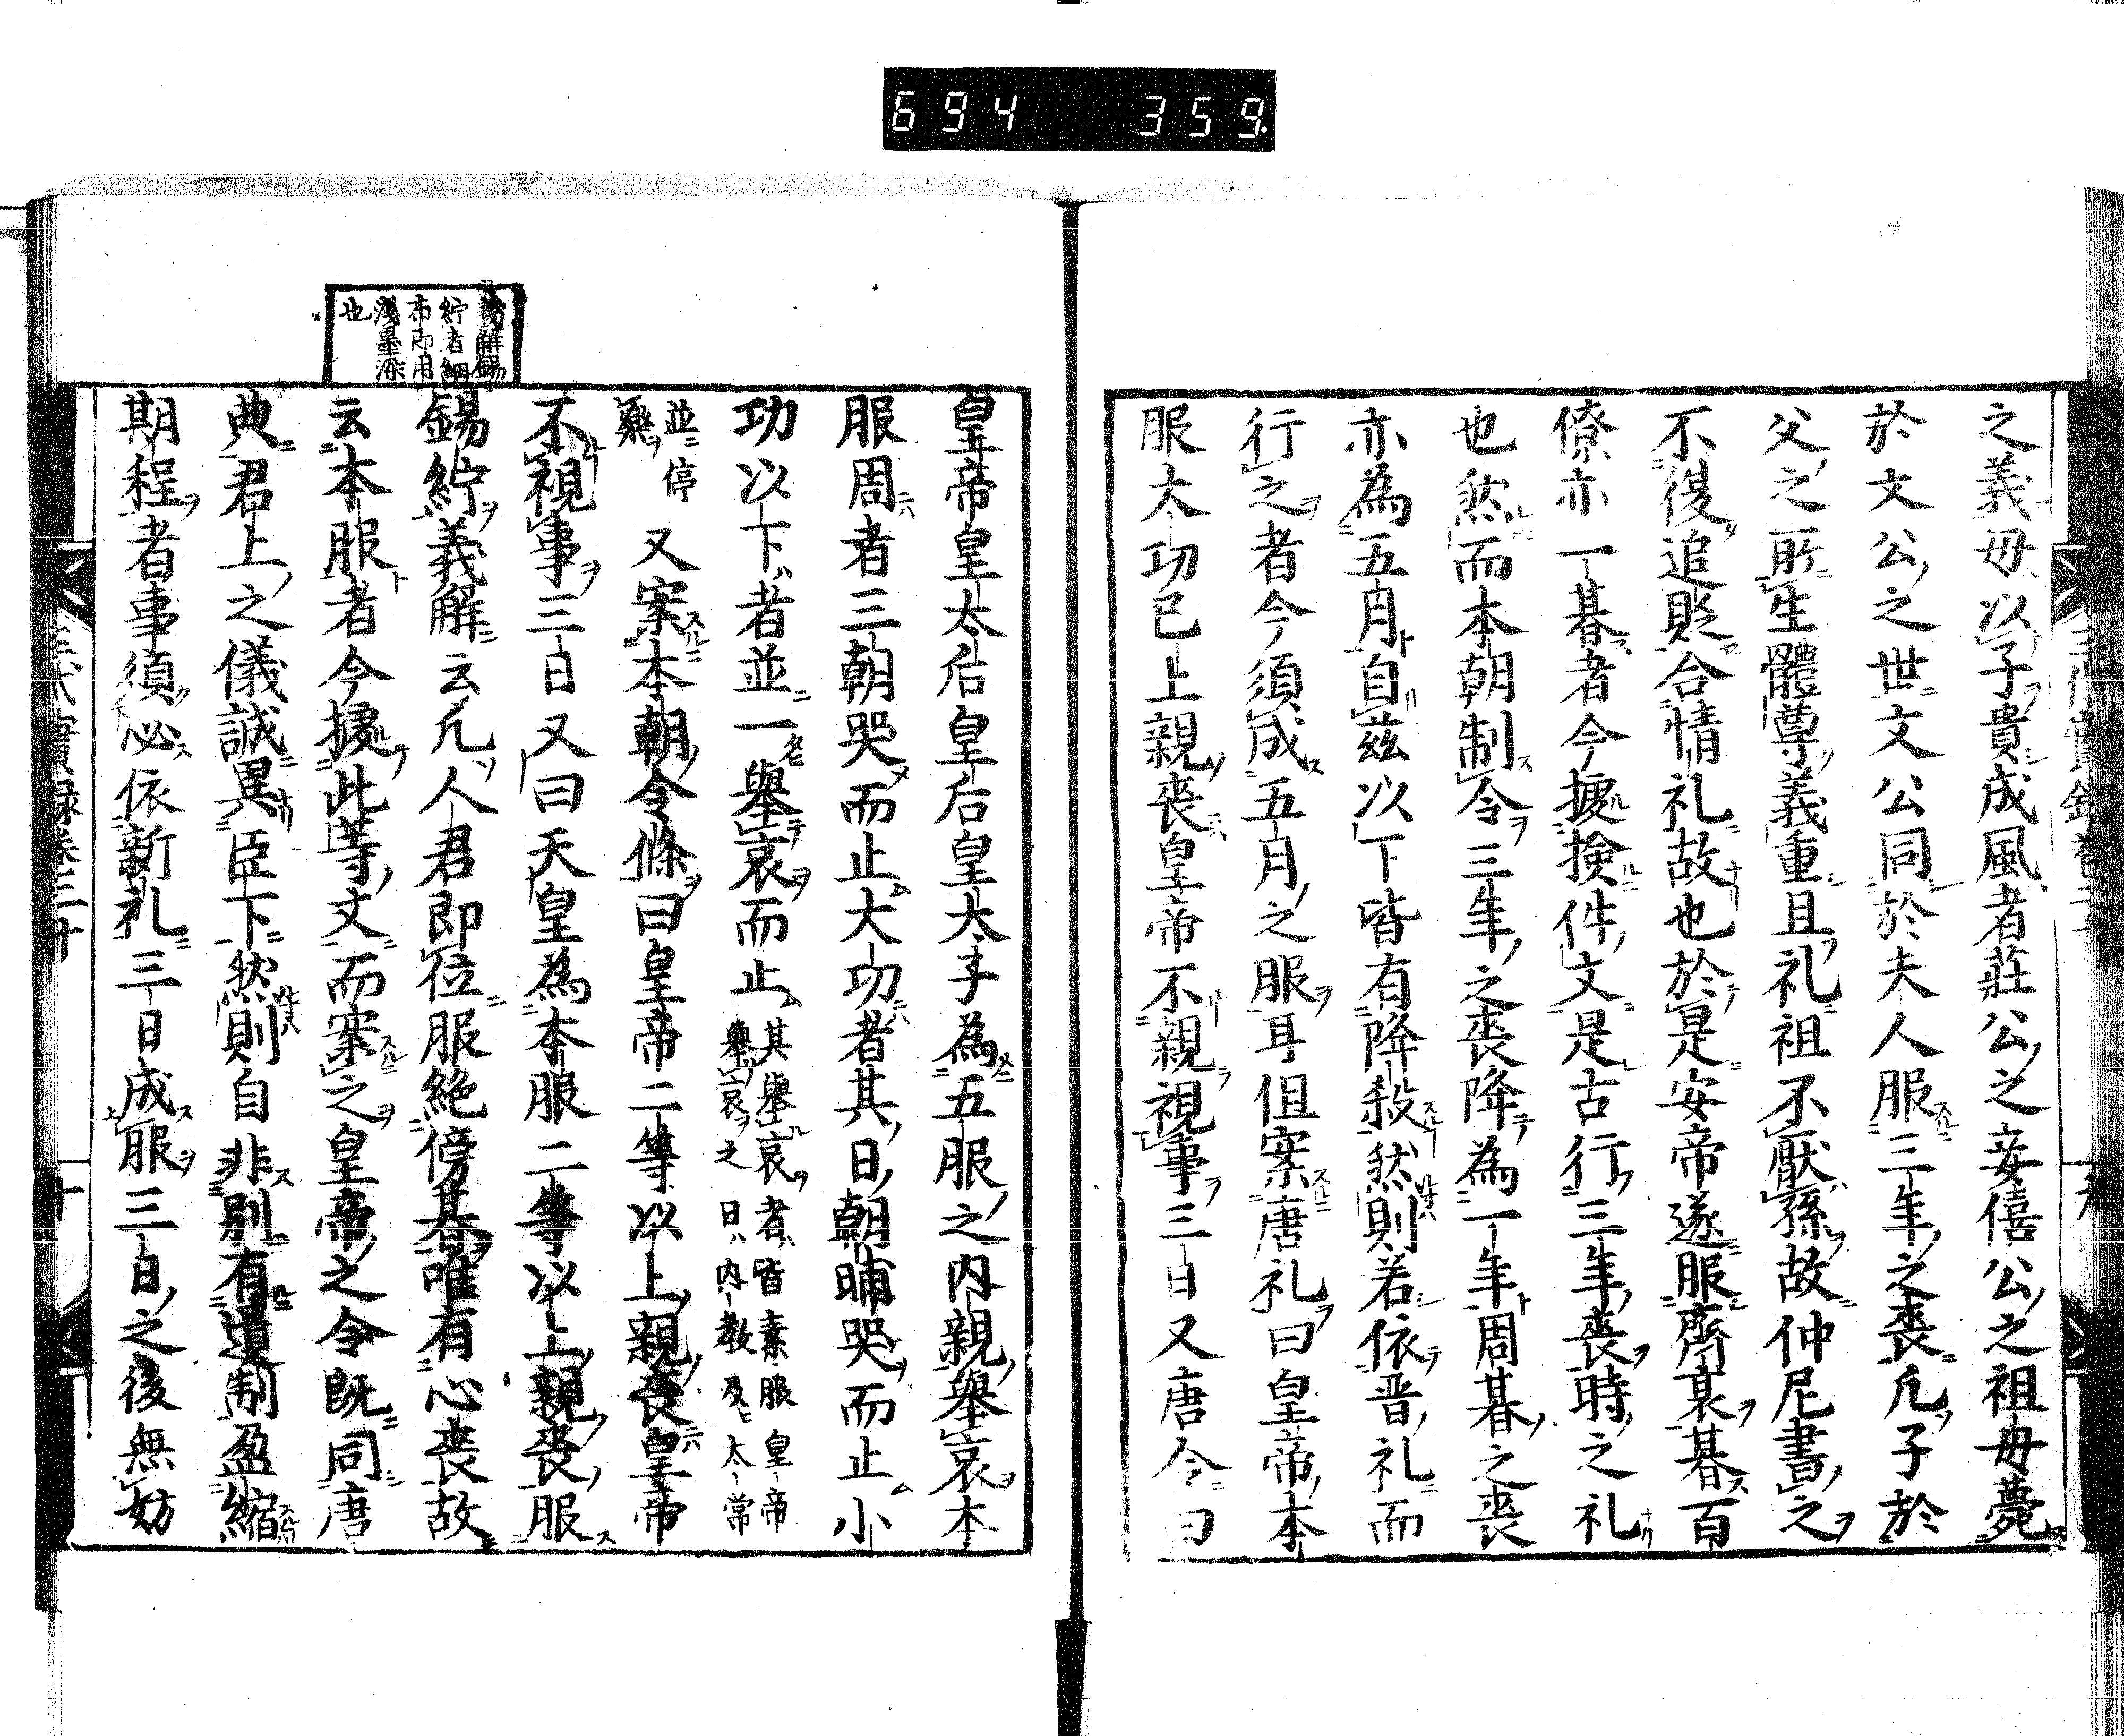 694 359.
之義毋以子貴成風者莊公之妾僖公之祖毋薨
於文公之世文公同於夫人服三年之喪凢子於
父之所生體尊義重且礼祖不厭孫故仲尼書之
不復追貶合情礼故也於是安帝遂服齊衰朞百
僚亦一朞者今據撿件文是古行三年喪時之礼
也然而本朝制令三年之喪降為一年周朞之喪
亦為五月自茲以下皆有降殺然則若依晋礼而
行之者今須成五月之服耳但案唐礼曰皇帝本
服大功已上親喪皇帝不親視事三日又唐令曰
皇帝皇太后皇后皇太子為五服之内親舉哀本
服周者三朝哭而止大功者其日朝晡哭而止小
功以下者並一舉哀而止其舉哀者皆素服皇帝
舉哀之日内教及太常
並停
樂又案本朝令條曰皇帝二等以上親喪皇帝
不視事三日又曰天皇為本服二等以上親喪服
錫紵義解云凢人君即位服絶傍朞唯有心喪故
云本服者今據此等文而案之皇帝之令既同唐
典君上之儀誠異臣下然則自非別有遺制盈縮
期程者事須必依新礼三日成服三日之後無妨
義解錫
紵者細
布即用
淺墨染
也